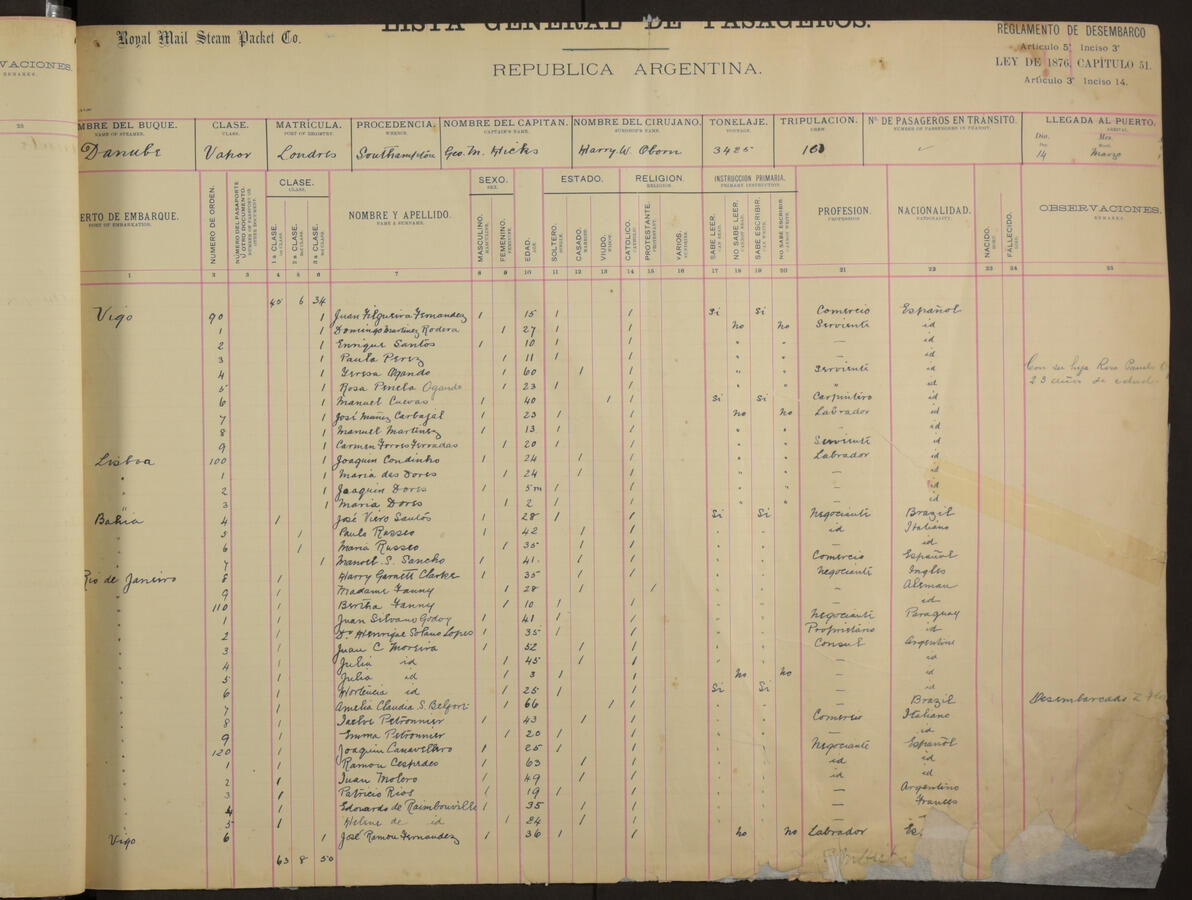 LISTA GENERAL DE PASAGEROS.
Royal Mail Steam Packet Co.
REPUBLICA ARGENTINA.
REGLAMENTO DE DESEMBARCO
Artículo 5º Inciso 3º
LEY DE 1876, CAPÍTULO 51.
Artículo 3º Inciso 14.
VACIONES.
REMARKS.
25
MBRE DEL BUQUE. CLASE. MATRÍCULA. PROCEDENCIA. NOMBRE DEL CAPITAN. NOMBRE DEL CIRUJANO. TONELAJE. TRIPULACION. Nº. DE PASAGEROS EN TRÁNSITO. LLEGADA AL PUERTO.
NAME OF STEAMER. CLASS. PORT OF REGISTRY. WHENCE. CAPTAIN'S NAME. SURGEON'S NAME. TONNAGE. CREW. NUMBER OF PASSENGERS IN TRANSIT. ARRIVAL.
Dia. Mes.
Danube Vapor Londres Southampton Geo. M. Hicks Harry W. Oborn 3425 14 Marzo
ERTO DE EMBARQUE. NUMERO DE ORDEN. NÚMERO DEL PASAPORTE U OTRO DOCUMENTO. CLASE. NOMBRE Y APELLIDO. SEXO. EDAD. ESTADO. RELIGION. INSTRUCCION PRIMARIA. PROFESION. NACIONALIDAD. NACIDO. FALLECIDO. OBSERVACIONES.
PORT OF EMBARKATION. CLASS. NAME & SURNAME. SEX. AGE. STATE. RELIGION. PRIMARY INSTRUCTION. PROFESSION NATIONALITY. REMARKS.
1a CLASE. 2a CLASE. 3a CLASE. MASCULINO. FEMENINO. SOLTERO. CASADO. VIUDO. CATOLICO. PROTESTANTE. VARIOS. SABE LEER. NO SABE LEER. SABE ESCRIBIR. NO SABE ESCRIBIR
1 2 3 4 5 6 7 8 9 10 11 12 13 14 15 16 17 18 19 20 21 22 23 24 25
45 6 34
Vigo 90 1 Juan Filgueira Fernandez 1 15 1 1 Si Si Comercio Español
1 1 Domingo Martinez Rodera 1 27 1 1 No No Serviente id
2 1 Enrique Santos 1 10 1 1 " " — id
3 1 Paula Perez 1 11 1 1 " " — id
4 1 Teresa Ogando 1 60 1 1 " " Serviente id Con su hija Rosa
5 1 Rosa Peneta Ogando 1 23 1 1 " " " id 23 años de edad
6 1 Manuel Cuevas 1 40 1 1 Si Si Carpintero id
7 1 José Muñez Carbajal 1 23 1 1 No No Labrador id
8 1 Manuel Martinez 1 13 1 1 " " — id
9 1 Carmen Torres Ferradas 1 20 1 1 " " Serviente id
Lisboa 100 1 Joaquin Condinho 1 24 1 1 " " Labrador id
" 1 1 Maria das Dores 1 24 1 1 " " — id
" 2 1 Joaquin Dores 1 5m 1 1 " " — id
" 3 1 Maria Dores 1 2 1 1 " " — id
Bahia 4 1 José Viero Santos 1 28 1 1 Si Si Negociante Brazil
" 5 1 Paulo Rosseo 1 42 1 1 " " id Italiano
" 6 1 Maria Russeo 1 35 1 1 " " — id
" 7 1 Manoel S. Sancho 1 41 1 1 " " Comercio Español
Rio de Janeiro 8 1 Harry Garnett Clarke 1 35 1 1 " " Negociante Ingles
" 9 1 Madame Fanny 1 28 1 1 " " — Aleman
" 110 1 Bertha Fanny 1 10 1 1 " " — id
" 1 1 Juan Silvano Godoy 1 41 1 1 " " Negociante Paraguay
" 2 1 Dr Henrique Solano Lopes 1 35 1 1 " " Proprietario id
" 3 1 Juan C Moreira 1 52 1 1 " " Consul Argentine
" 4 1 Julia id 1 45 1 1 " " — id
" 5 1 Julia id 1 3 1 1 No No — id
" 6 1 Hortencia id 1 25 1 1 Si Si — id
" 7 1 Amelia Claudia S. Belfort 1 66 1 1 " " — Brazil Desembarcado
" 8 1 Petronnier 1 43 1 1 " " Comercio Italiano
" 9 1 Emma Petronnier 1 20 1 1 " " — id
" 120 1 Joaquin Canavellero 1 25 1 1 " " Negociante Español
" 1 1 Ramon Cespedes 1 63 1 1 " " id id
" 2 1 Juan Molero 1 49 1 1 " " id id
" 3 1 Patricio Rios 1 19 1 1 " " — Argentino
" 4 1 Edouardo de Raimbouville 1 35 1 1 " " — Frances
" 5 1 Helene de id 1 24 1 1 " " — id
Vigo 6 1 José Ramon Fernandez 1 36 1 1 No No Labrador Es
63 8 50